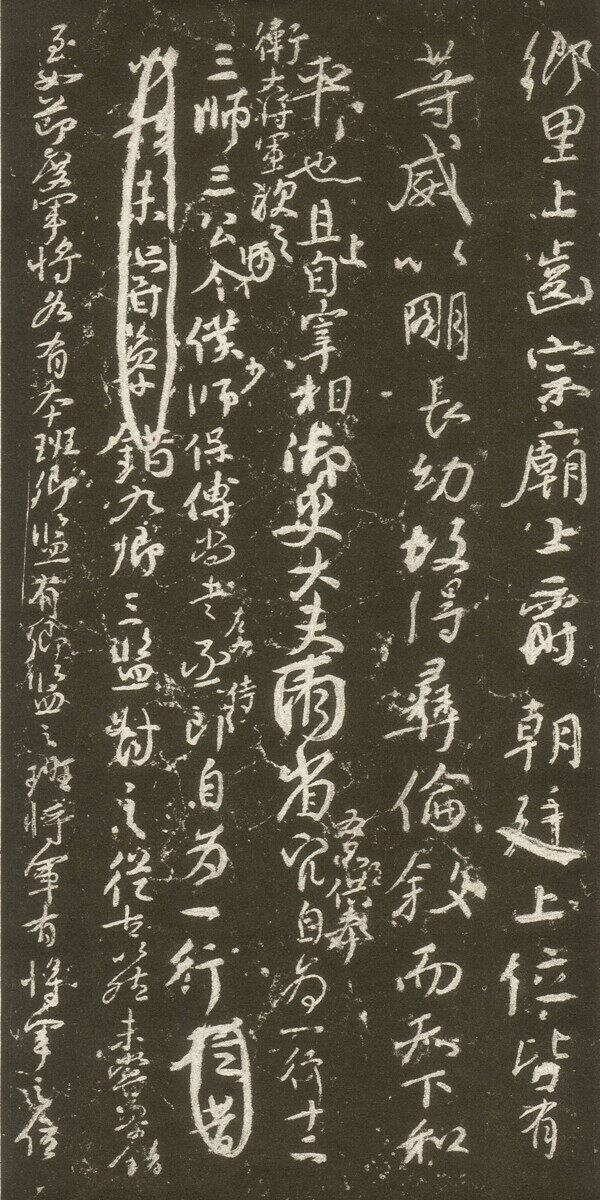 鄉里上齒宗廟上爵朝廷上位皆有
等威以明長幼故得彝倫敘而天下和
平也且上自宰相御史大夫兩省五品供奉官自為一行十二
衛大將軍次之
三師三公令僕少師保傅尚書左右丞侍郎自為一行
九卿三監對之從古以然未嘗參錯
至如節度軍將各有本班卿監有卿監之班將軍有將軍之位